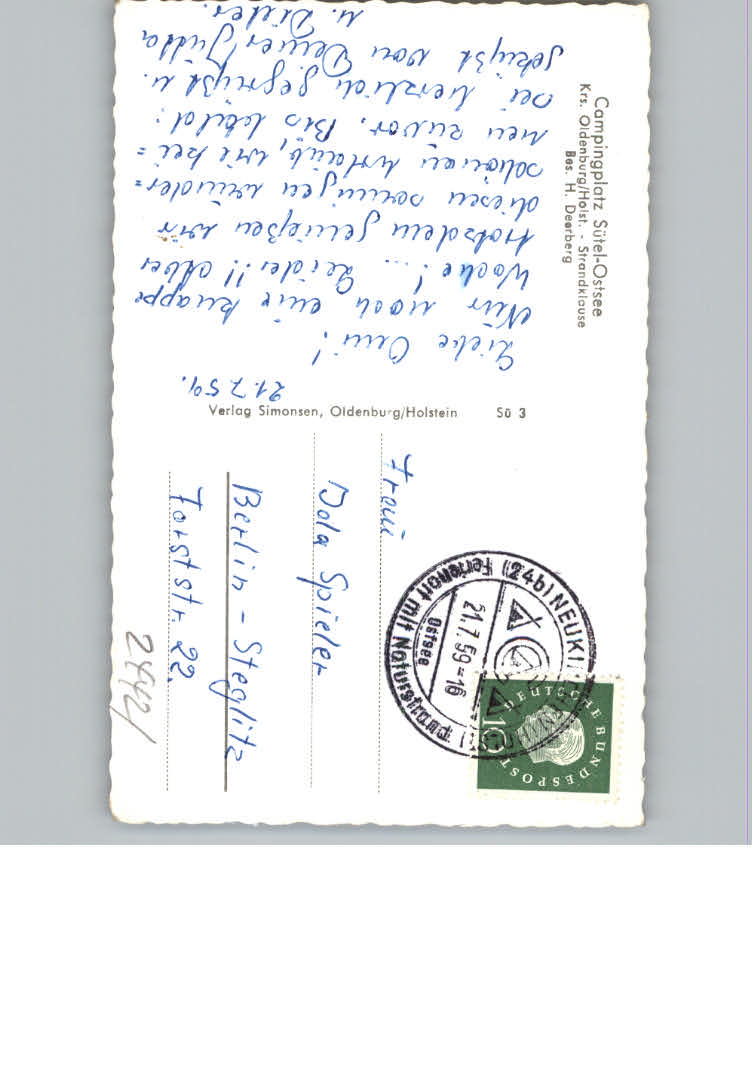 Campingplatz Sütel-Ostsee
Krs. Oldenburg/Holst. - Strandklause
Bes. H. Deerberg
21.7.59.
Liebe Omi!
Nur noch eine knappe
Woche!... Leider!! Aber
trotzdem genießen wir
diesen sonnigen wunder=
schönen Urlaub, wie kei=
nen zuvor. Bis bald:
sei herzlich gegrüßt u.
geküßt von Deiner Jutta
u. Dieter.
Verlag Simonsen, Oldenburg/Holstein Sü 3
Frau
Dola Spieler
Berlin - Steglitz
Forststr. 22.
2442/
(24b) NEUKI
Ferienort mit Naturstrand
21.7.59-16
Ostsee
DEUTSCHE BUNDESPOST
10